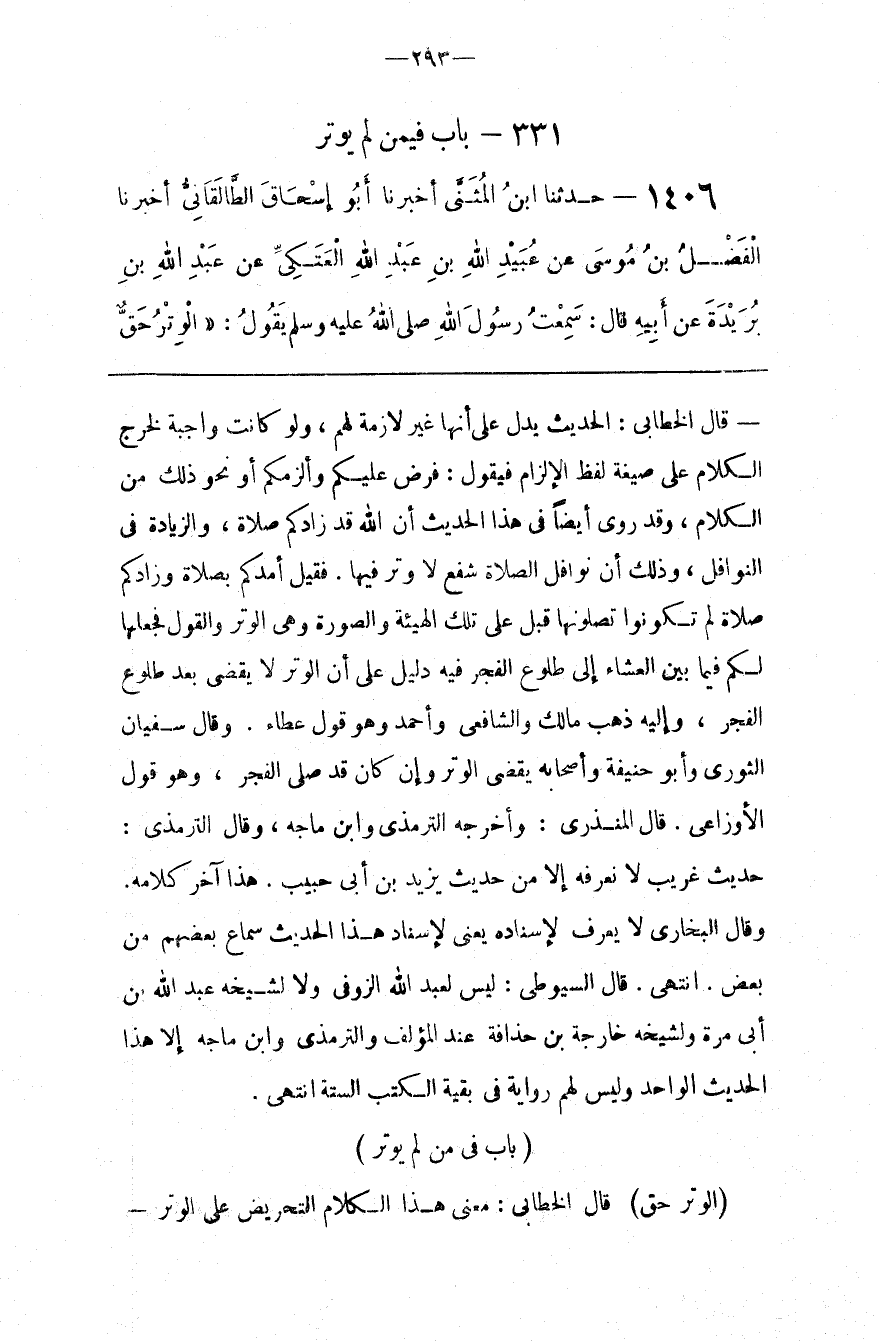 —٢٩٣—
٣٣١ – باب فيمن لم يوتر
١٤٠٦ – حـدثنا ابنُ المُثَـنَّى أخبرنا أَبُو إسْحَـاقَ الطَّالَقَانِىُّ أخبرنا
الْفَضْـــلُ بنُ مُوسَى عن عُبَيْدِ اللهِ بنِ عَبْدِ اللهِ الْعَتَـكِىِّ عن عَبْدِ اللهِ بنِ
بُرَيْدَةَ عن أَبِيهِ قال: سَمِعْتُ رسولَ اللهِ صلى اللهُ عليه وسلم يَقُولُ: « الْوِتْرُ حَقٌّ
— قال الخطابى : الحديث يدل على أنها غير لازمة لهم ، ولو كانت واجبة لخرج
الـكلام على صيغة لفظ الإلزام فيقول : فرض عليـكم وألزمكم أو نحو ذلك من
الـكلام ، وقد روى أيضاً فى هذا الحديث أن الله قد زادكم صلاة ، والزيادة فى
النوافل ، وذلك أن نوافل الصلاة شفع لا وتر فيها . فقيل أمدكم بصلاة وزادكم
صلاة لم تـكونوا تصلونها قبل على تلك الهيئة والصورة وهى الوتر والقول فجعلها
لـكم فيما بين العشاء إلى طلوع الفجر فيه دليل على أن الوتر لا يقضى بعد طلوع
الفجر ، وإليه ذهب مالك والشافعى وأحمد وهو قول عطاء . وقال سـفيان
الثورى وأبو حنيفة وأصحابه يقضى الوتر وإن كان قد صلى الفجر ، وهو قول
الأوزاعى . قال المنـذرى : وأخرجه الترمذى وابن ماجه ، وقال الترمذى :
حديث غريب لا نعرفه إلا من حديث يزيد بن أبى حبيب . هذا آخر كلامه.
وقال البخارى لا يعرف لإسناده يعنى لإسناد هـذا الحديث سماع بعضهم من
بعض . انتهى . قال السيوطى : ليس لعبد الله الزوفى ولا لشـيخه عبد الله بن
أبى مرة ولشيخه خارجة بن حذافة عند المؤلف والترمذى وابن ماجه إلا هذا
الحديث الواحد وليس لهم رواية فى بقية الـكتب الستة انتهى .
( باب فى من لم يوتر )
(الوتر حق) قال الخطابى : معنى هـذا الـكلام التحريض على الوتر —